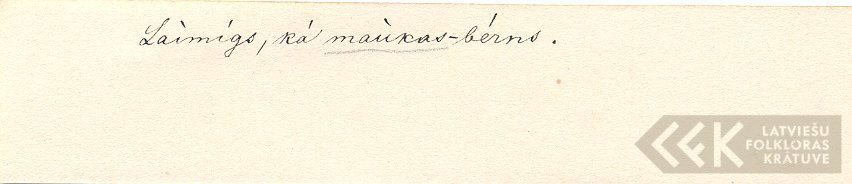 Laìmigs, ká maùkas-bérns.
LATVIEŠU
FOLKLORAS
KRĀTUVE